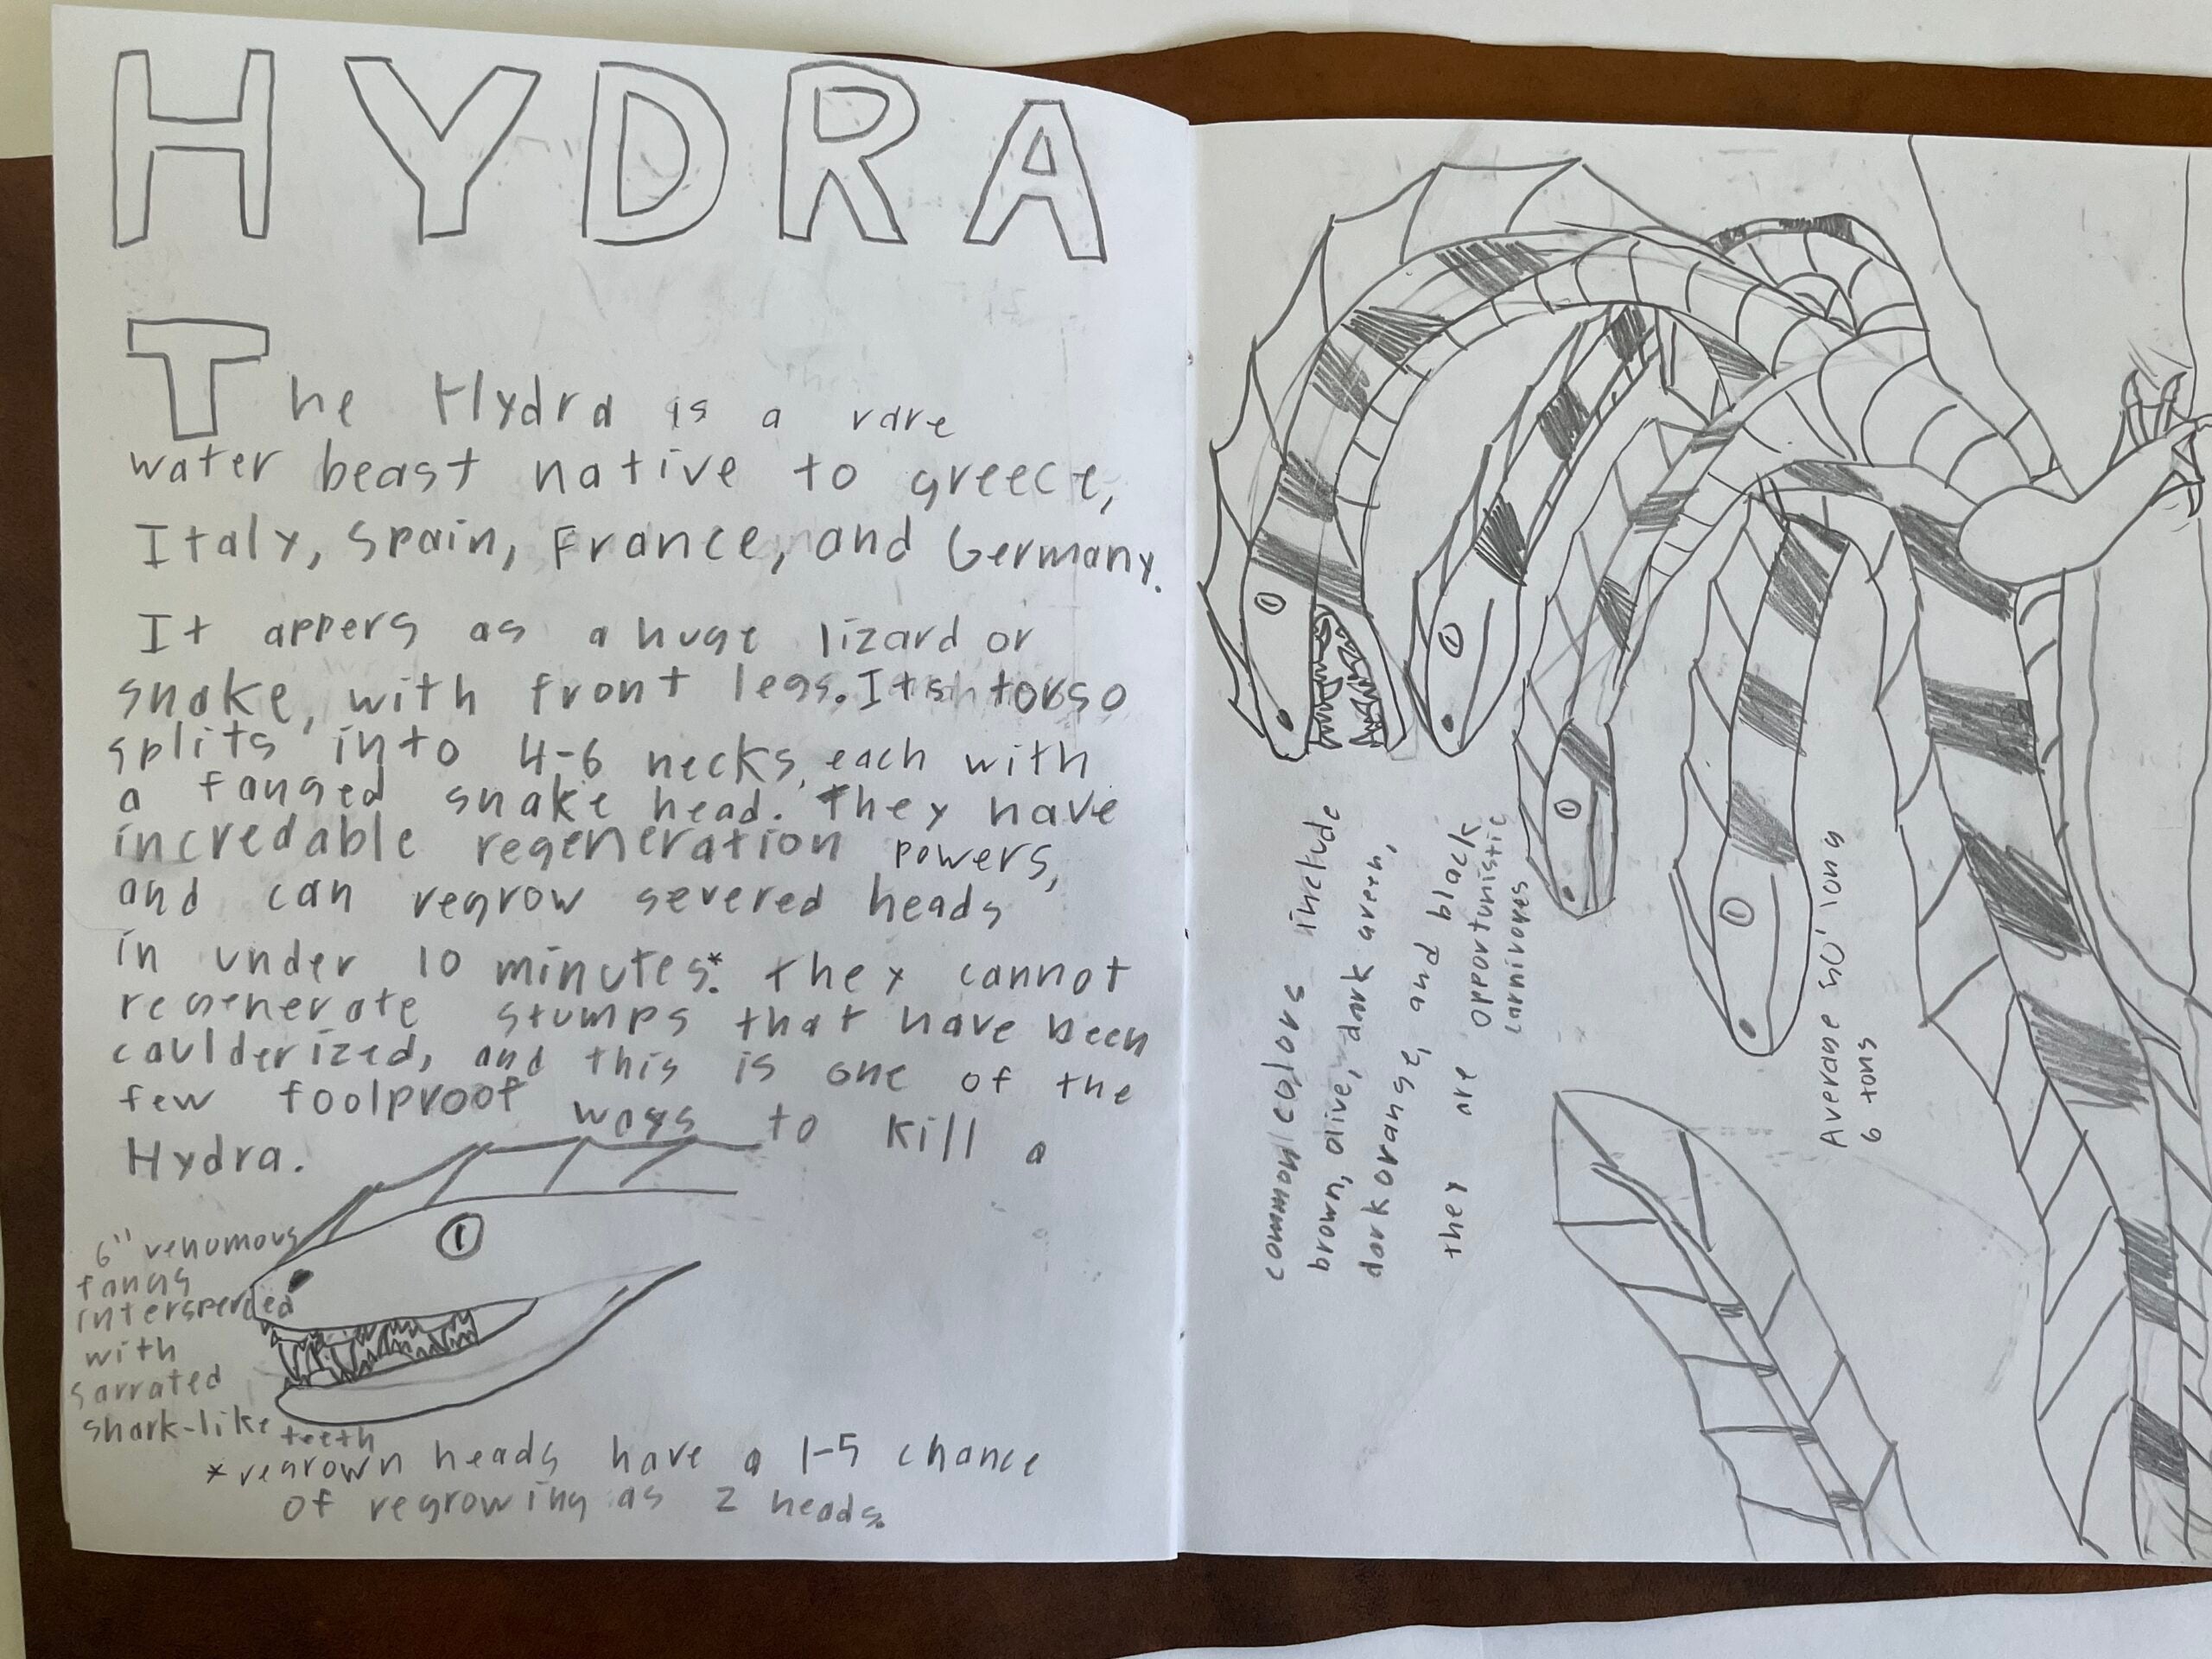 HYDRA
The Hydra is a rare
water beast native to greece,
Italy, Spain, France, and Germany.
It appers as a huge lizard or
snake, with front legs. Its torso
splits into 4-6 necks, each with
a fanged snake head. They have
incredable regeneration powers,
and can regrow severed heads
in under 10 minutes*. they cannot
regenerate stumps that have been
caulderized, and this is one of the
few foolproof ways to kill a
Hydra.
6" venomous
fangs
intersperced
with
sarrated
shark-like teeth
*regrown heads have a 1-5 chance
of regrowing as 2 heads.
common colors include
brown, olive, dark green,
dark orange, and black
they are opportunistic
carnivores
Average long
6 tons